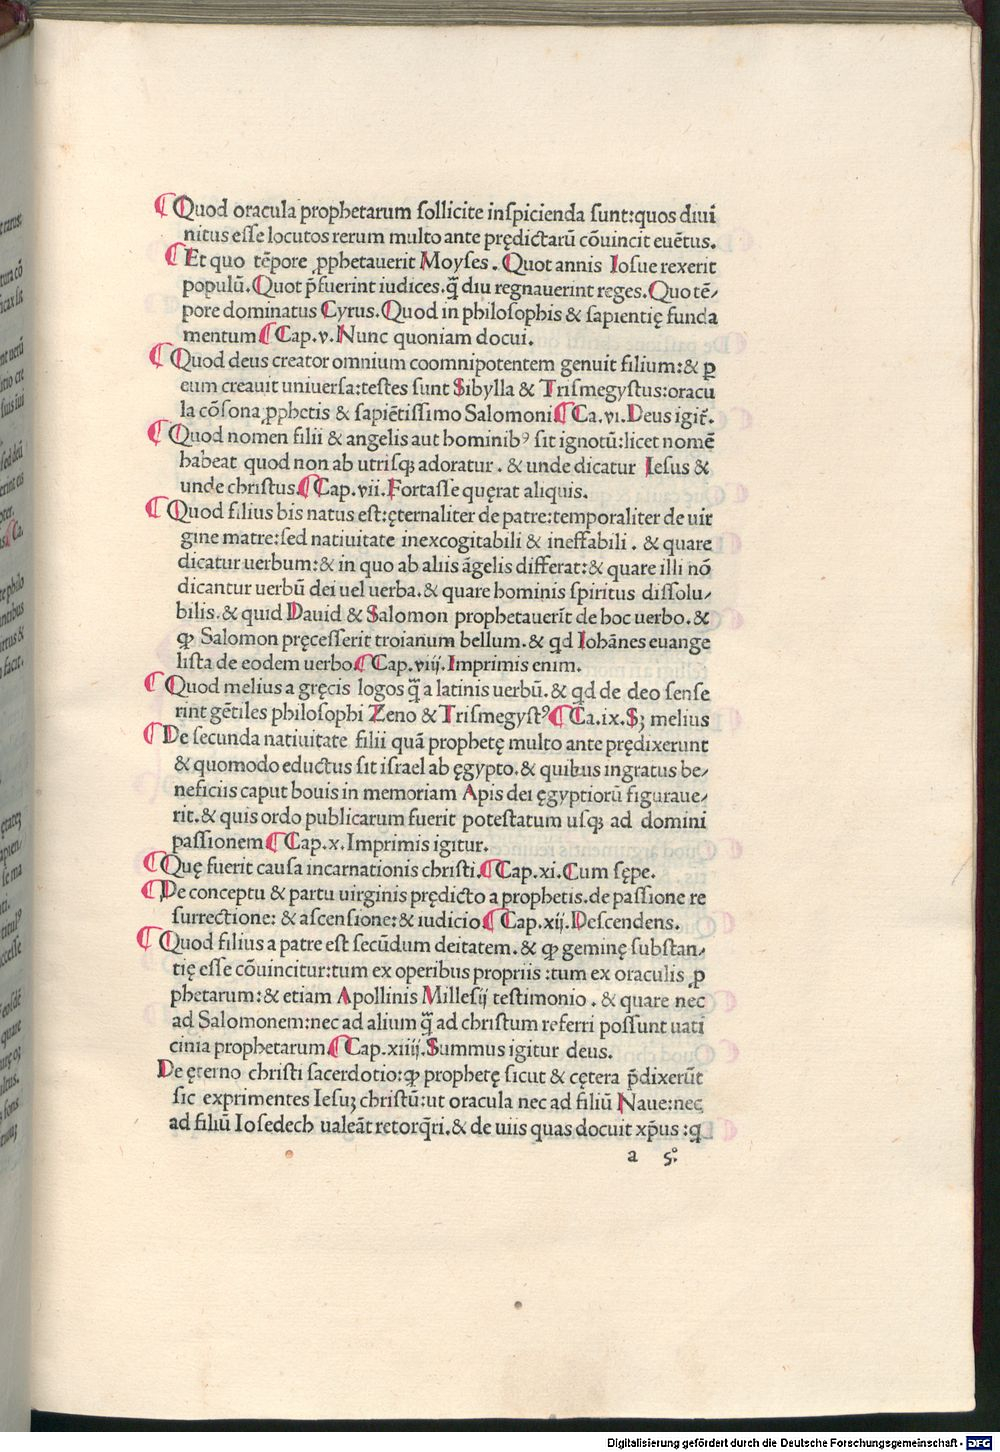 ¶ Quod oracula prophetarum sollicite inspicienda sunt:quos diui
nitus esse locutos rerum multo ante prędictarū cōuincit euētus.
¶ Et quo tēpore ꝓphetauerit Moyses. Quot annis Iosue rexerit
populū. Quot p̄fuerint iudices. q̄ diu regnauerint reges. Quo tē/
pore dominatus Cyrus. Quod in philosophis & sapientię funda
mentum ¶ Cap.v. Nunc quoniam docui.
¶ Quod deus creator omnium coomnipotentem genuit filium:& ꝑ
eum creauit uniuersa:testes sunt Sibylla & Trismegystus:oracu
la cōsona ꝓphetis & sapiētissimo Salomoni ¶ Ca.vi. Deus igit̄.
¶ Quod nomen filii & angelis aut hominibꝰ sit ignotū:licet nomē
habeat quod non ab utrisqꝫ adoratur. & unde dicatur Iesus &
unde christus. ¶ Cap.vii. Fortasse quęrat aliquis.
¶ Quod filius bis natus est:ęternaliter de patre:temporaliter de uir
gine matre:sed natiuitate inexcogitabili & ineffabili. & quare
dicatur uerbum:& in quo ab aliis āgelis differat:& quare illi nō
dicantur uerbū dei uel uerba. & quare hominis spiritus dissolu/
bilis. & quid Dauid & Salomon prophetauerīt de hoc uerbo. &
ꝙ Salomon pręcesserit troianum bellum. & qd Iohānes euange
lista de eodem uerbo ¶ Cap.viij. Imprimis enim.
¶ Quod melius a gręcis logos q̄ a latinis uerbū. & qd de deo sense
rint gētiles philosophi Zeno & Trismegystꝰ ¶ Ca.ix. Sꝫ melius
¶ De secunda natiuitate filii quā prophetę multo ante prędixerunt
& quomodo eductus sit israel ab ęgypto. & quibus ingratus be/
neficiis caput bouis in memoriam Apis dei ęgyptiorū figuraue/
rit. & quis ordo publicarum fuerit potestatum usqꝫ ad domini
passionem ¶ Cap.x. Imprimis igitur.
¶ Quę fuerit causa incarnationis christi. ¶ Cap.xi. Cum sępe.
¶ De conceptu & partu uirginis prędicto a prophetis. de passione re
surrectione: & ascensione: & iudicio ¶ Cap.xij. Descendens.
¶ Quod filius a patre est secūdum deitatem. & ꝙ geminę substan/
tię esse cōuincitur:tum ex operibus propriis :tum ex oraculis ꝓ
phetarum:& etiam Apollinis Millesij testimonio. & quare nec
ad Salomonem:nec ad alium q̄ ad christum referri possunt uati
cinia prophetarum. ¶ Cap.xiiij. Summus igitur deus.
De ęterno christi sacerdotio:ꝙ prophetę sicut & cętera p̄dixerūt
sic exprimentes Iesuꝫ christū:ut oracula nec ad filiū Naue:nec
ad filiū Iosedech ualeāt retorq̄ri. & de uiis quas docuit xp̄us :q
a 5
Digitalisierung gefördert durch die Deutsche Forschungsgemeinschaft - DFG